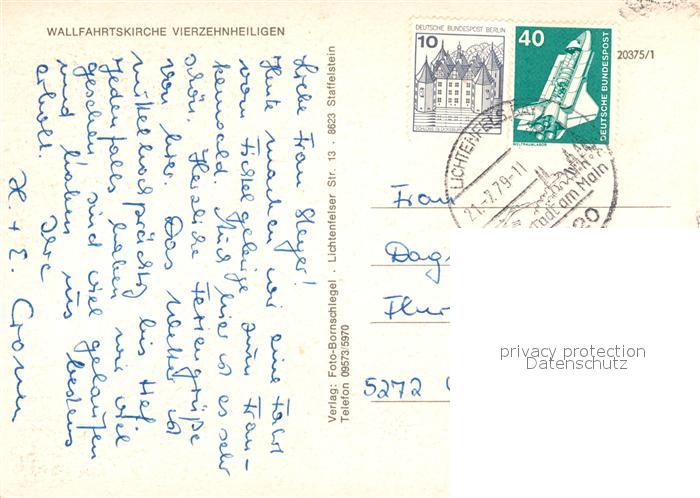 WALLFAHRTSKIRCHE VIERZEHNHEILIGEN
Liebe Frau
Heute machen wir eine Fahrt
vom Fichtelgebirge zum Fran-
kenwald. Auch hier ist es sehr
schön. Herzliche Feriengrüße
von hier. Das Wetter ist
mittelprächtig bis
Jedenfalls haben wir viel
gesehen, sind viel gelaufen
und haben uns bestens
erholt. Ihre
H. + E.
Verlag: Foto-Bornschlegel · Lichtenfelser Str. 13 · 8623 Staffelstein
Telefon 09573/5970
DEUTSCHE BUNDESPOST BERLIN
10
SCHLOSS GLÜCKSBURG
40
DEUTSCHE BUNDESPOST
WELTRAUMLABOR
20375/1
LICHTENFELS
21.-7.79-11
Stadt am Main
20
Frau
Dag
Flur
5272
privacy protection
Datenschutz